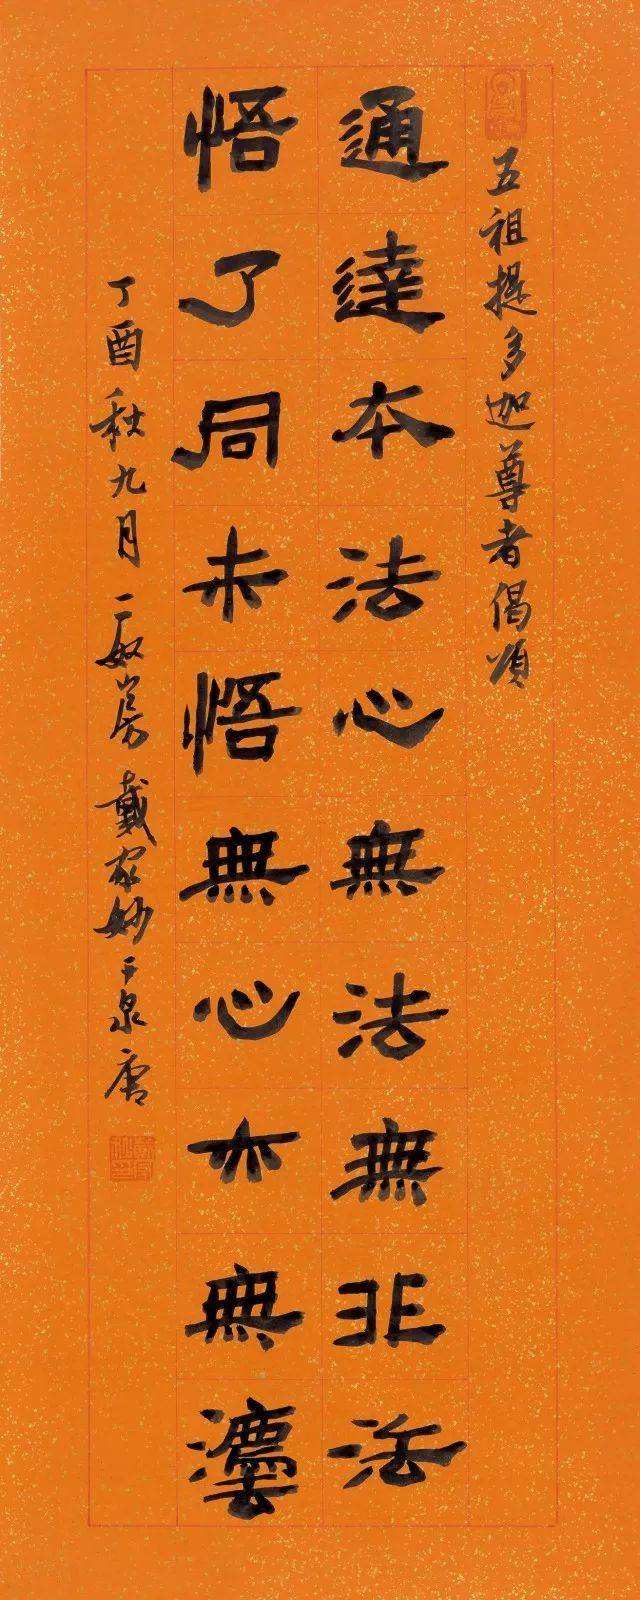 五祖提多迦尊者偈頌
通達本法心無法無非法
悟了同未悟無心亦無灋
丁酉秋九月山房戴家妙于泉唐